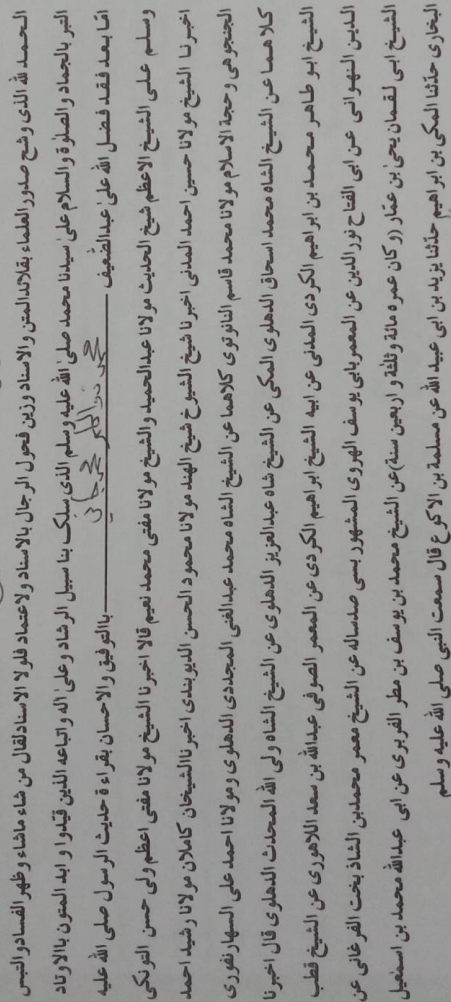 الحمد لله الذی وشح صدور العلماء بقلائد المتن والاسناد وزین فحول الرجال بالاسناد ولاعتماد فلولا الاسناد لقال من شاء ماشاء وظهر الفساد والتبس
البر بالجماد والصلوٰة والسلام علیٰ سیدنا محمد صلی الله علیه وسلم الذی سلک بنا سبیل الرشاد وعلیٰ اٰله واتباعه الذین قیّدوا و ابد المتون باالاوتاد
امّا بعد فقد فضل الله علیٰ عبدالضعیف محمد باالتوفیق والاحسان بقراءة حدیث الرسول صلی الله علیه
وسلم علی الشیخ الاعظم شیخ الحدیث مولانا عبدالحمید والشیخ مولانا مفتی محمد نعیم قالا اخبرنا الشیخ مولانا مفتی اعظم ولی حسن التونکی
اخبرنا الشیخ مولانا حسین احمد المدنی اخبرنا شیخ الشیوخ شیخ الهند مولانا محمود الحسن الدیوبندی اخبرنا الشیخان کاملان مولانا رشید احمد
الجنجوهی وحجة الاسلام مولانا محمد قاسم النانوتوی کلاهما عن الشیخ الشاه محمد عبدالغنی المجددی الدهلوی ومولانا احمد علی السهارنفوری
کلاهما عن الشیخ الشاه محمد اسحاق الدهلوی المکی عن الشیخ شاه عبدالعزیز الدهلوی عن الشیخ الشاه ولی الله المحدث الدهلوی قال اخبرنا
الشیخ ابو طاهر محمد بن ابراهیم الکردی المدنی عن ابیه الشیخ ابراهیم الکردی عن المعمر الصوفی عبدالله بن سعد اللاهوری عن الشیخ قطب
الدین النهروانی عن ابی الفتاح نورالدین عن المعمر بابی یوسف الهروی المشهور بسی صدساله عن الشیخ معمر محمدبن الشاذ بخت الفرغانی عن
الشیخ ابی لقمان یحیٰ بن عمّار (وکان عمره مائة وثلثة و اربعین سنة) عن الشیخ محمد بن یوسف بن مطر الفربری عن ابی عبدالله محمد بن اسمٰعیل
البخاری حدّثنا المکی بن ابراهیم حدّثنا یزید بن ابی عبید الله عن مسلمة بن الاکوع قال سمعت النبی صلی الله علیه وسلم